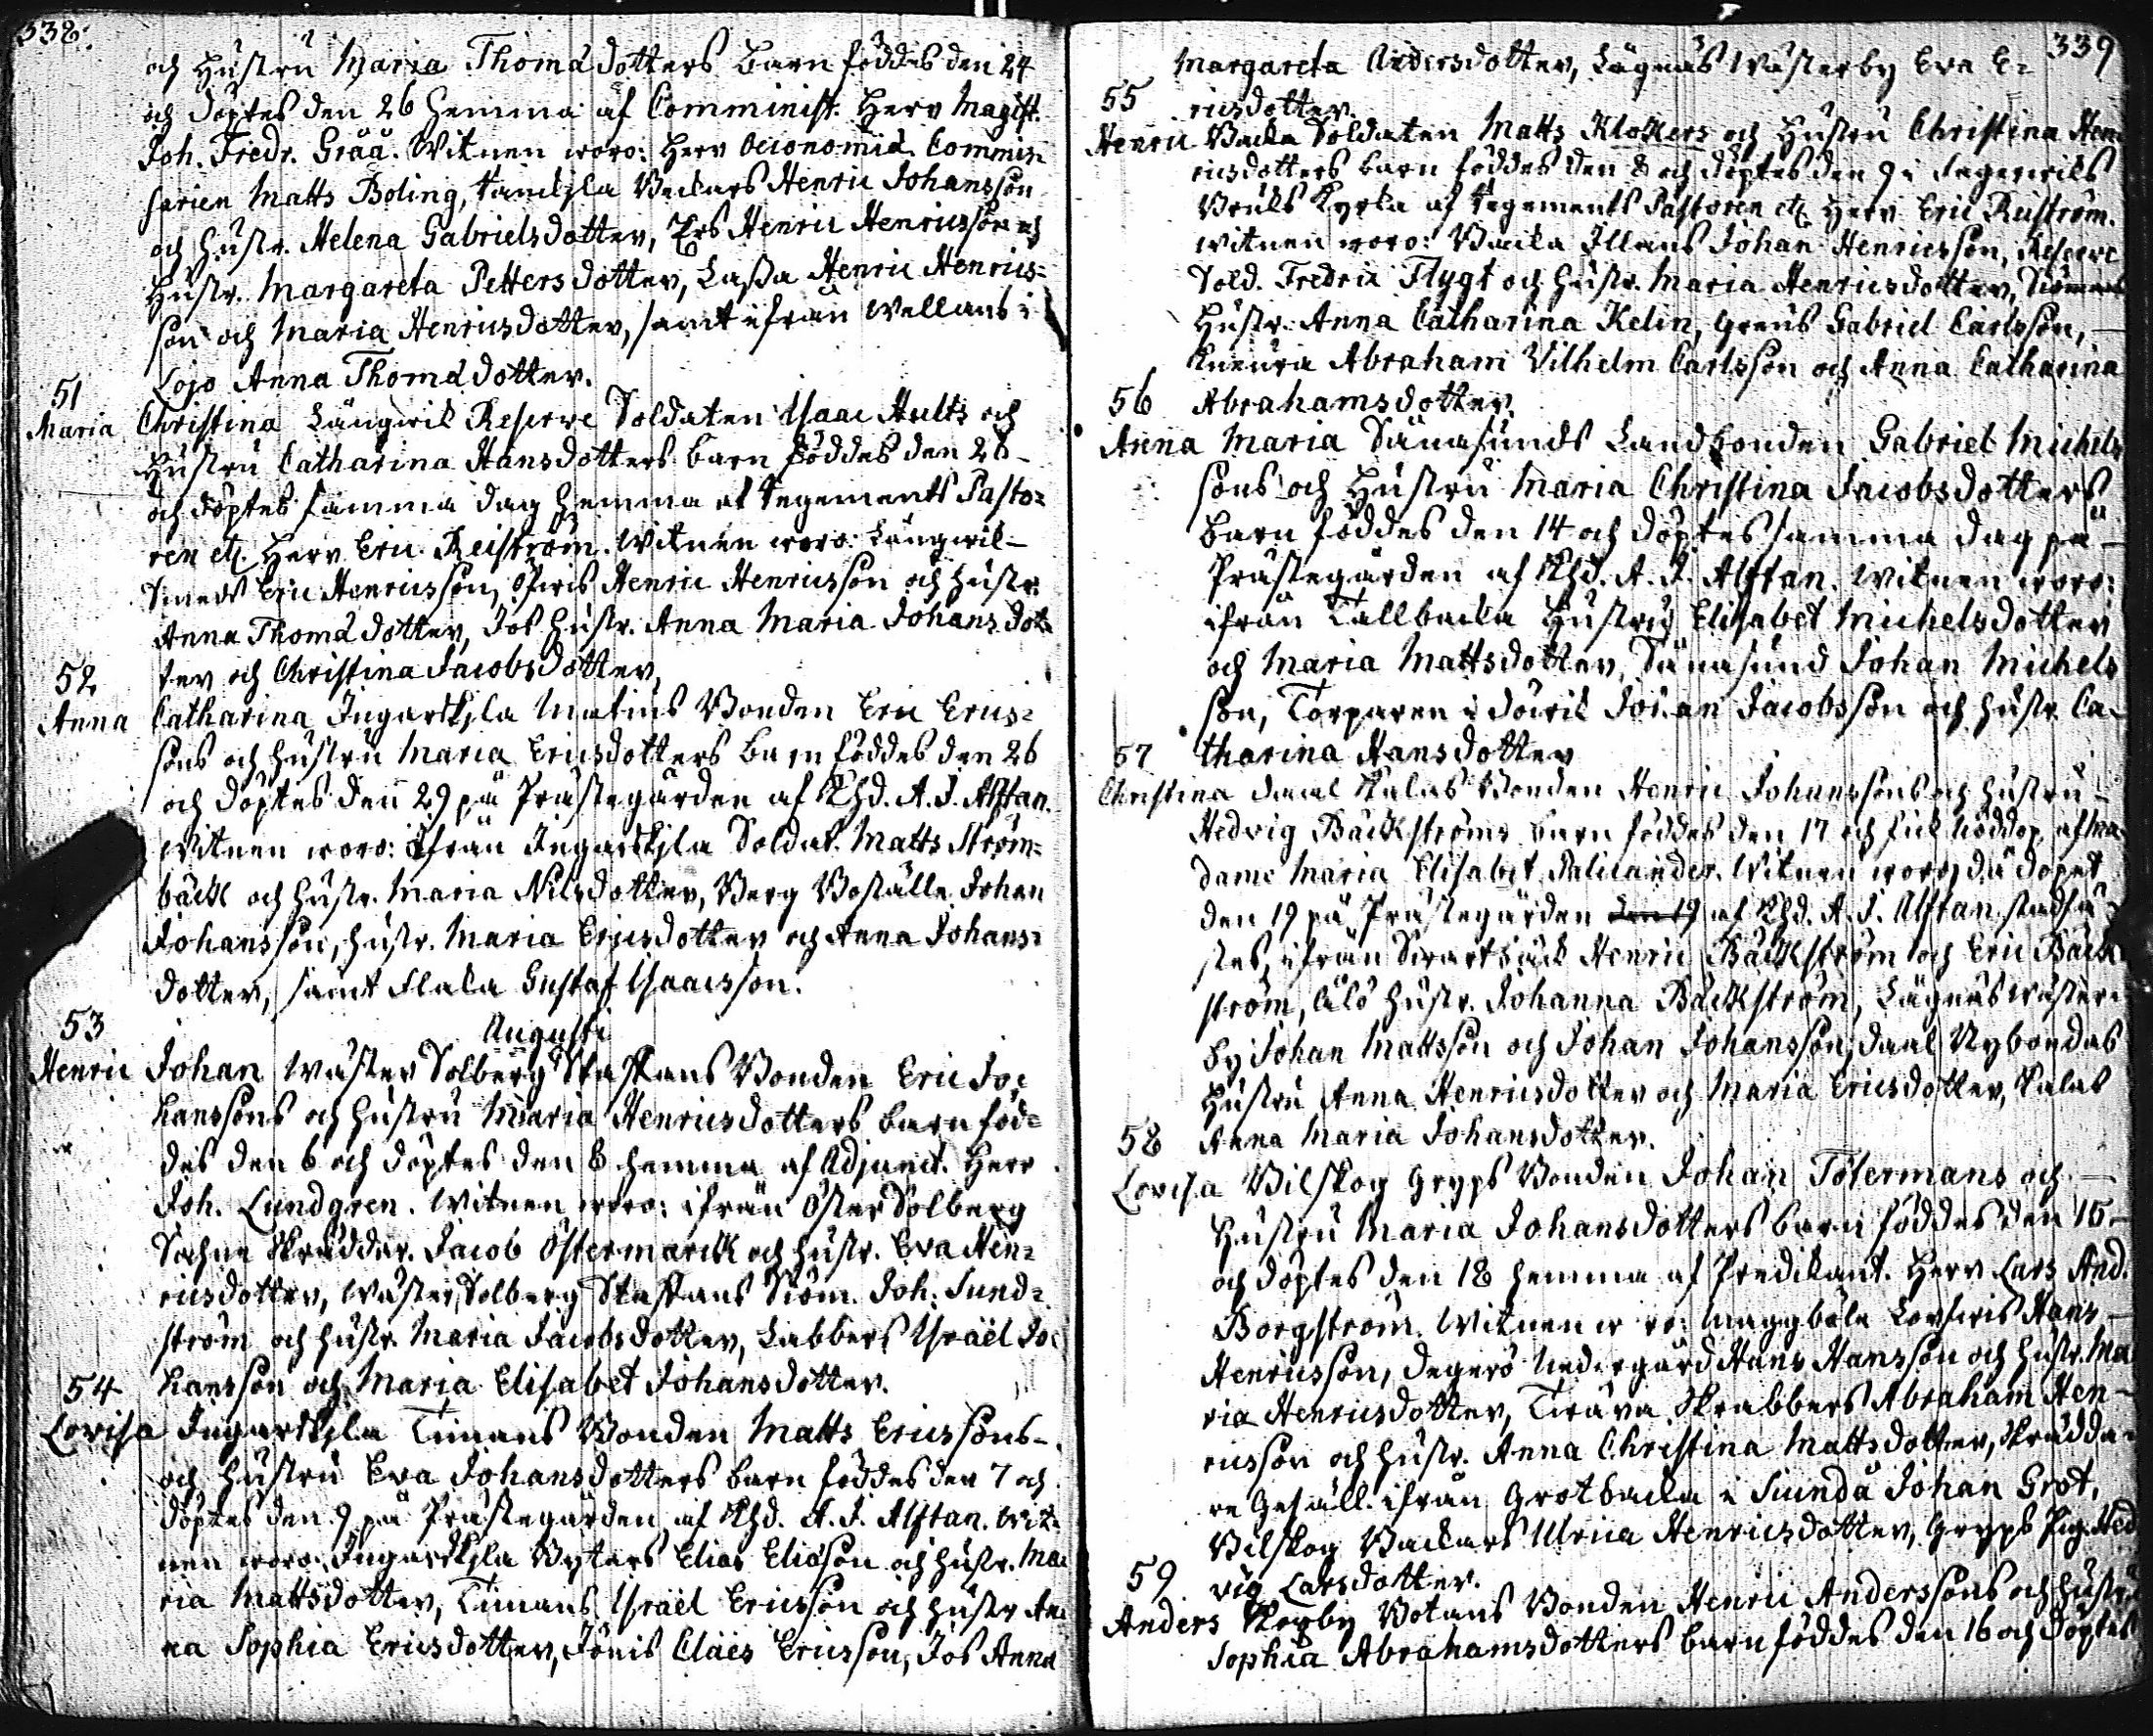 338.
och Hustru Maria Thomædotters barn föddes den 24
och döptes den 26 hemma af Comminist. Herr Magist.
Joh. Fredr. Gråå. Witnen woro: Herr Oeconomiæ Commis-
sarien Matts Boling, Backars Henric Johansson
och Hustr. Helena Gabrielsdotter, Ers Henric Henricsson och
Hustr. Margareta Pettersdotter, Lassa Henric Henrics-
son och Maria Henricsdotter, samt ifrån Wellans i
Lojo Anna Thomædotter.
51
Maria Christina Långwik Reserve Soldaten Isaac Hults och
Hustru Catharina Hansdotters barn föddes den 26
och döptes samma dag hemma af Regements Pasto-
ren etc. Herr Eric Reiström. Witnen woro: Långwik
Smeds Eric Henricsson, Henric Henricsson och Hustr.
Anna Thomædotter, Jos Hustr. Anna Maria Johansdot-
ter och Christina Jacobsdotter,
52
Anna Catharina Ingarskila Matius Bonden Eric Erics-
sons och Hustru Maria Ericsdotters barn föddes den 26
och döptes den 29 på Prästegården af Khd. A. J. Alftan.
Witnen woro: ifrån Ingarskila Soldat. Matts Ström-
bäck och Hustr. Maria Nilsdotter, Berg Boställe Johan
Johansson, Hustr. Maria Ericsdotter och Anna Johans-
dotter, samt Flaka Gustaf Isaacsson.
Augusti
53
Henric Johan Wäster Solberg Staffans Bonden Eric Jo-
hanssons och Hustru Maria Henricsdotters barn föd-
des den 6 och döptes den 8 hemma af Adjunct. Herr
Joh. Lundgren. Witnen woro: ifrån Öster Solberg
Sockne Skräddar. Jacob Östermarck och Hustr. Eva Hen-
ricsdotter, Wäster Solberg Staffans Siöm. Joh. Sund-
ström och Hustr. Maria Jacobsdotter, Labbers Israël Jo-
hansson och Maria Elisabet Johansdotter.
54
Lovisa Ingarskila Timans Bonden Matts Ericssons
och Hustru Eva Johansdotters barn föddes den 7 och
döptes den 9 på Prästegården af Khd. A. J. Alftan. Wit-
nen woro: Ingarskila Byters Elias Eliæson och Hustr. Ma-
ria Mattsdotter, Timans Israël Ericsson och Hustr An-
na Sophia Ericsdotter, Jönis Claës Ericsson, Jos Anna
339
Margareta Andersdotter, Lägnäs Wästerby Eva E-
ricsdotter.
55
Henric Backa Soldaten Matts Klockers och Hustru Christina Hen-
ricsdotters barn föddes den 8 och döptes den 9 i Fagerwiks
Bruks Kyrka af Regements Pastoren etc. Herr Eric Reiström.
Witnen woro: Backa Illans Johan Henricsson, Reserve
Sold. Fredric Flygt och Hustr. Maria Henricsdotter,
Hustr. Anna Catharina Kelin, Greus Gabriel Carlsson,
Abraham Vilhelm Carlsson och Anna Catharina
Abrahamsdotter.
56
Anna Maria Sänasunds Landbonden Gabriel Michels-
sons och Hustru Maria Christina Jacobsdotters
barn föddes den 14 och döptes samma dag på
Prästegården af Khd. A. J. Alftan. Witnen woro:
ifrån Tallbacka Hustru Elisabet Michelsdotter
och Maria Mattsdotter, Sänasund Johan Michels-
son, Torparen i Johan Jacobsson och Hustr. Ca-
tharina Hansdotter
57
Christina Daal Skalas Bonden Henric Johanssons och Hustru
Hedvig Bäckströms barn föddes den 17 och fick nöddop. af Ma-
dame Maria Elisabet Palicander. Witnen woro, då dopet
den 19 på Prästegården den 19 af Khd. A. J. Alftan stadfä-
stes, ifrån Swartbäck Henric Bäckström och Eric Bäck-
ström, Älö Hustr. Johanna Bäckström, Lägnäs Wäster-
by Johan Mattsson och Johan Johansson, Daal Nybondas
Hustru Anna Henricsdotter och Maria Ericsdotter, Skalas
Anna Maria Johansdotter.
58
Lovisa Bilskog Gryps Bonden Johan Tötermans och
Hustru Maria Johansdotters barn föddes den 15
och döptes den 18 hemma af Predikant. Herr Lars And.
Borgström. Witnen woro: Maggböle Hans
Henricsson, Degerö Nedergård Hans Hansson och Hustr. Ma-
ria Henricsdotter, Tirava Skrabbers Abraham Hen-
ricsson och Hustr. Anna Christina Mattsdotter, Skrädda-
re Gesäll. ifrån Grotbacka i Siundå Johan Grot,
Bilskog Backars Ulrica Henricsdotter, Gryps Pig. Hed-
vig Larsdotter.
59
Anders Skogby Botans Bonden Henric Anderssons och Hustru
Sophia Abrahamsdotters barn föddes den 16 och döptes